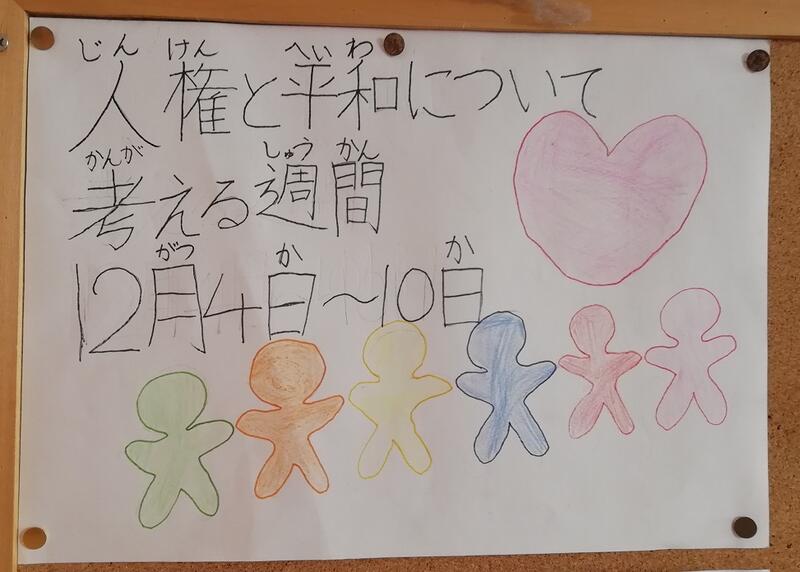 じん けん へいわ
人権と平和について
かんが しゅうかん
考える週間
がつ か か
12月4日～10日